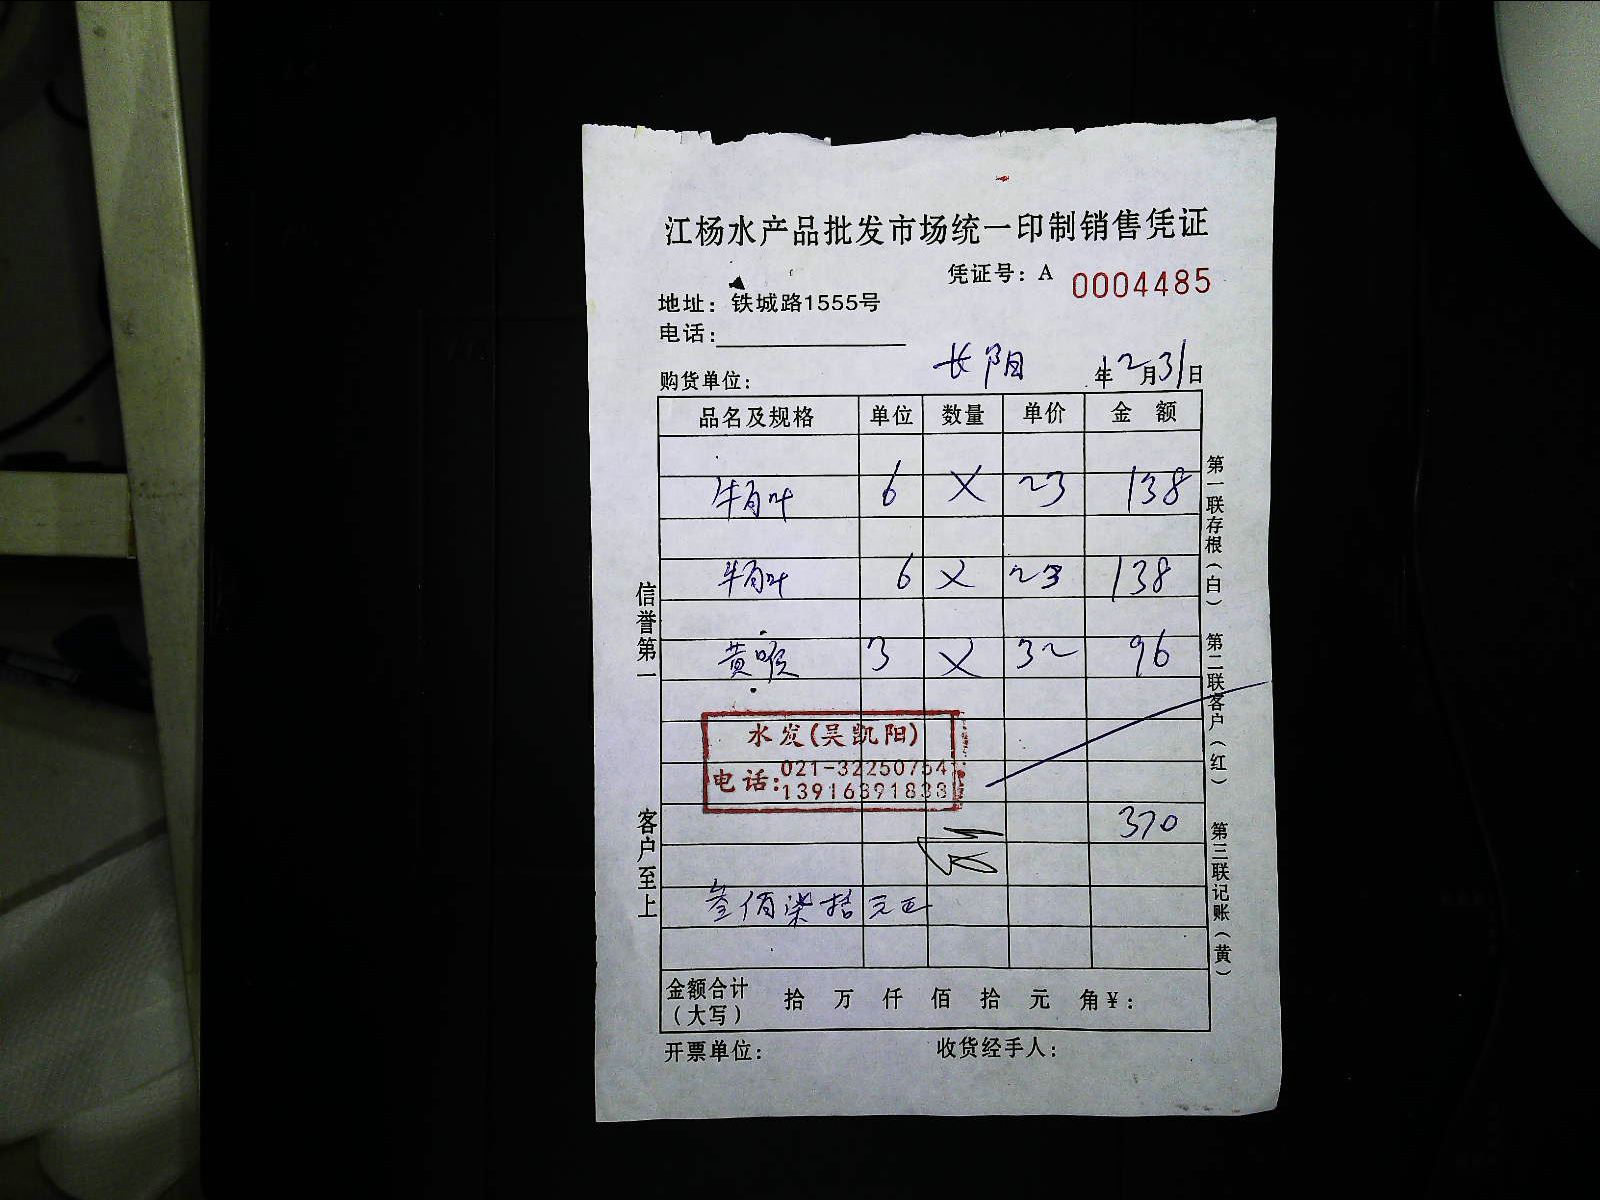 江杨水产品批发市场统一印制销售凭证
凭证号：A 0004485
地址：铁城路1555号
电话：
购货单位： 长阳 年2月31日
品名及规格 单位 数量 单价 金 额
牛百叶 6 × 23 138
牛百叶 6 × 23 138
黄喉 3 × 32 96
水发(吴凯阳)
电话：021-32250754
13916391833
370
叁佰柒拾元正
金额合计（大写） 拾 万 仟 佰 拾 元 角￥：
开票单位： 收货经手人：
信誉第一 客户至上
第一联存根（白） 第二联客户（红） 第三联记账（黄）